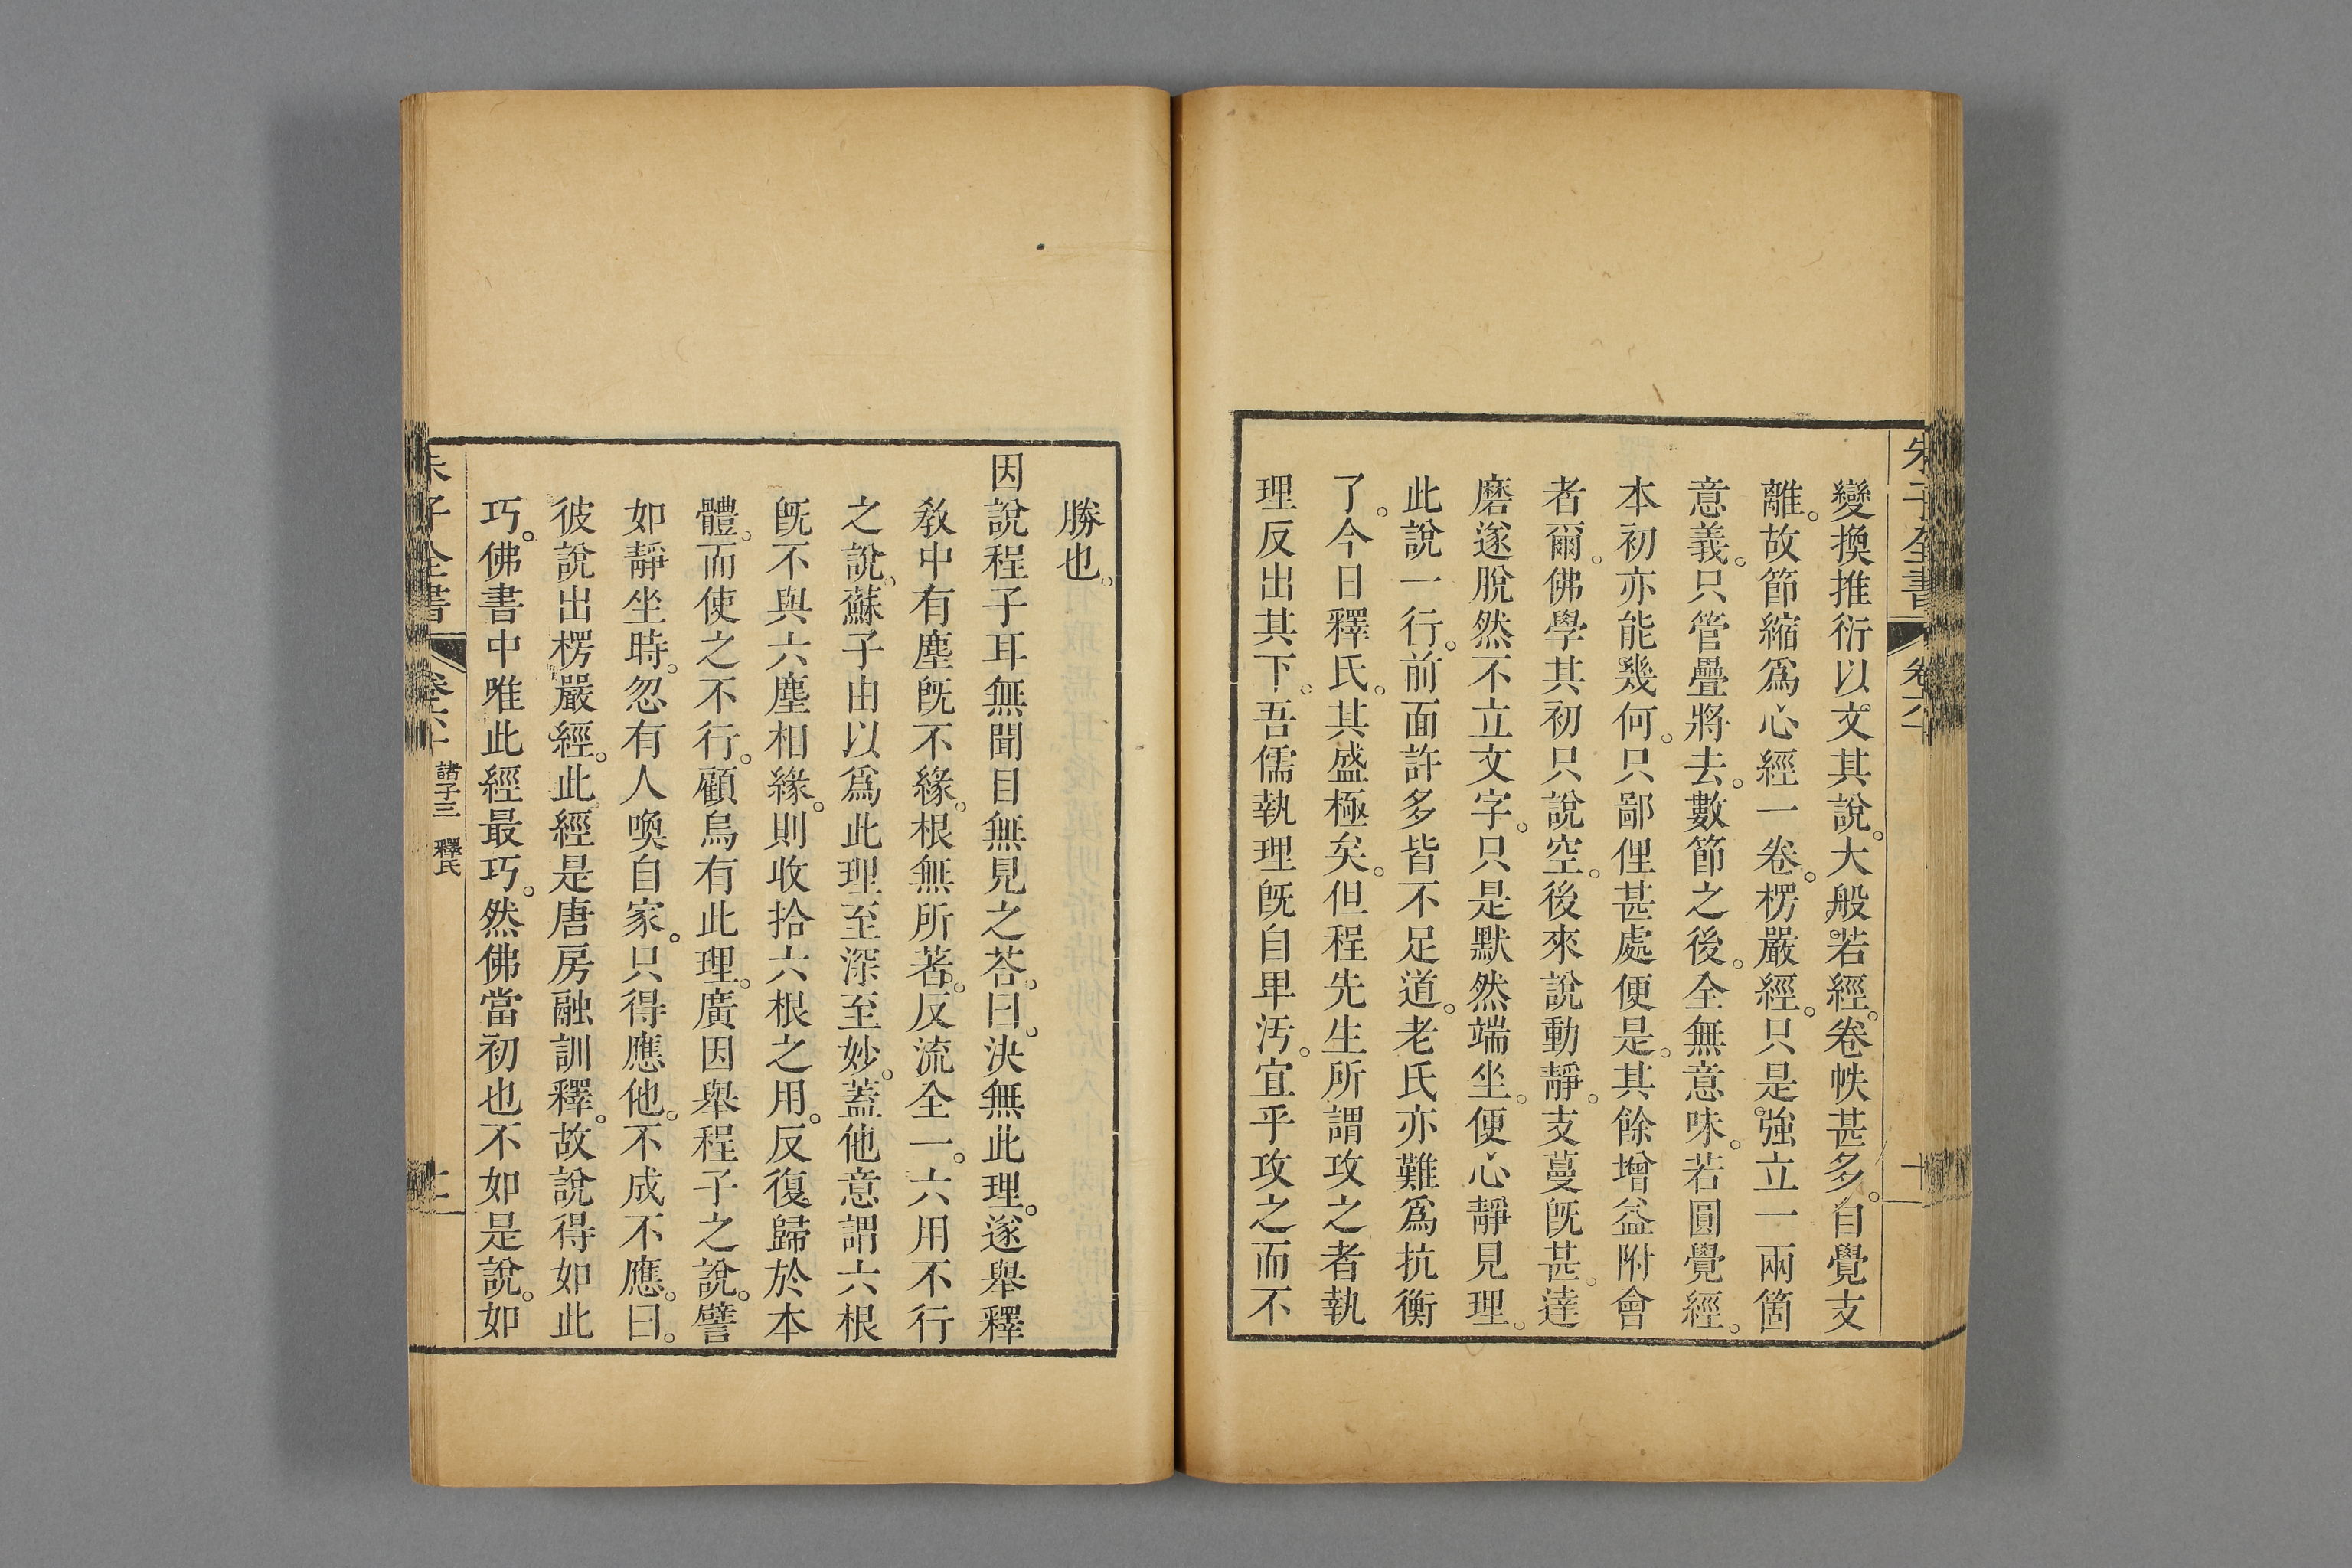 朱子全書 卷六十 十
變換推衍以文其說。大般若經。卷帙甚多。自覺支
離。故節縮爲心經一卷。楞嚴經。只是強立一兩箇
意義。只管疊將去。數節之後。全無意味。若圓覺經。
本初亦能幾何。只鄙俚甚處便是。其餘增益附會
者爾。佛學其初只說空。後來說動靜。支蔓旣甚。達
磨遂脫然不立文字。只是默然端坐。便心靜見理。
此說一行。前面許多皆不足道。老氏亦難爲抗衡
了。今日釋氏。其盛極矣。但程先生所謂攻之者執
理反出其下。吾儒執理旣自卑汚。宜乎攻之而不
勝也。
因說程子耳無聞目無見之荅。曰。決無此理。遂舉釋
敎中有塵旣不緣。根無所著。反流全一。六用不行
之說。蘇子由以爲此理至深至妙。蓋他意謂六根
旣不與六塵相緣。則收拾六根之用。反復歸於本
體。而使之不行。顧烏有此理。廣因舉程子之說。譬
如靜坐時。忽有人喚自家。只得應他。不成不應。曰。
彼說出楞嚴經。此經是唐房融訓釋。故說得如此
巧。佛書中唯此經最巧。然佛當初也不如是說。如
朱子全書 卷六十 諸子三 釋氏